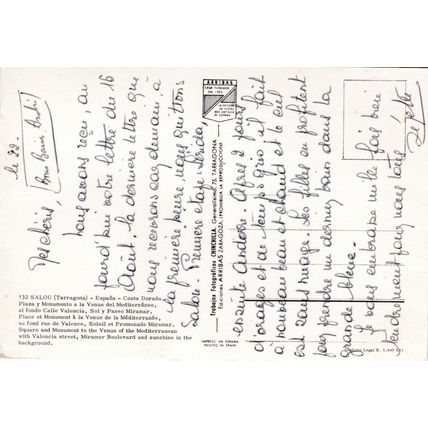 le 22-
Mes chéris, (Bon Anniv André!)
Nous avons reçu, au
jourd'hui votre lettre du 16
Août, la dernière lettre que
nous recevrons car demain, à
la première heure nous quittons
Salou - Première étape Lérida
ensuite Andorre. Après 2 jours
d'orages et de temps gris, il fait
à nouveau beau et chaud et le ciel
est sans nuage. Les filles en profitent
pour prendre un dernier bain dans la
grande bleue -
Je vous embrasse mille fois bien
tendrement pour nous tous
132 SALOU (Tarragona) - España - Costa Dorada
Plaza y Monumento a la Venus del Mediterráneo,
al fondo Calle Valencia, Sol y Paseo Miramar.
Place et Monument à la Venus de la Méditerranée,
au fond rue de Valence, Soleil et Promenade Miramar.
Square and Monument to the Venus of the Mediterranean
with Valencia street, Miramar Boulevard and sunshine in the
background.
ARRIBAS
CASA FUNDADA
EN 1905
Trabajos Fotográficos CHINCHILLA. Generalísimo, 75. TARRAGONA
Ediciones ARRIBAS ZARAGOZA. (PROHIBIDA LA REPRODUCCION)
IMPRESO EN ESPAÑA
PRINTED IN SPAIN